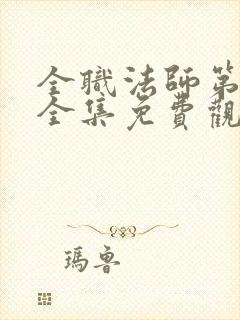 全職法師第
全集免費觀
瑪魯